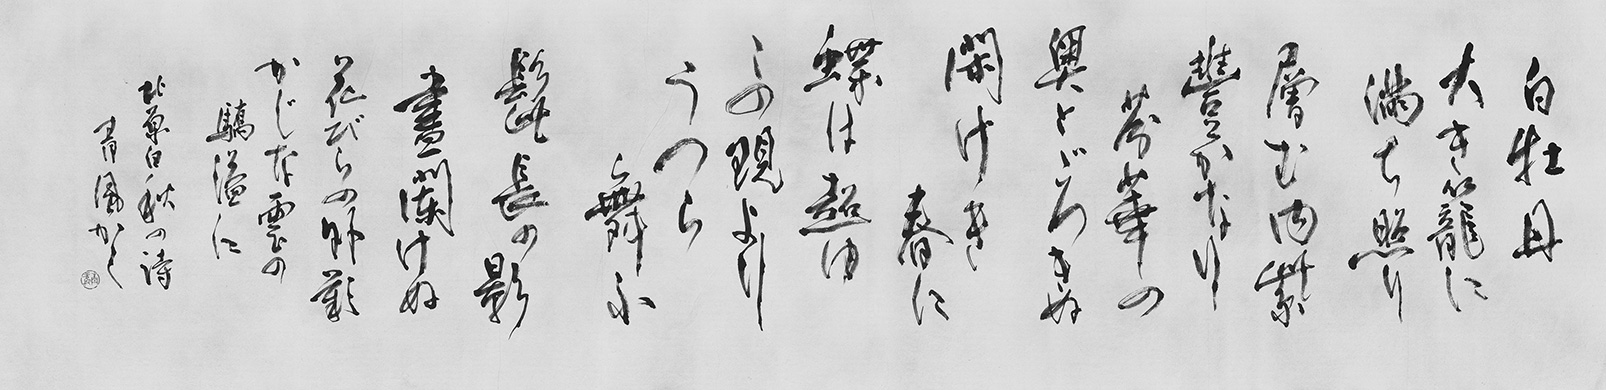 白牡丹
大き籠に
満ち照り
層む内紫
豐かなり
芬華の
奥とどろきぬ
閑けき
春に
蝶は超ゆ
この現より
うつら
舞ふ
髭長の影
晝闌けぬ
花びらの外歎
かじな雲の
驕溢に
北原白秋の詩
青風かく